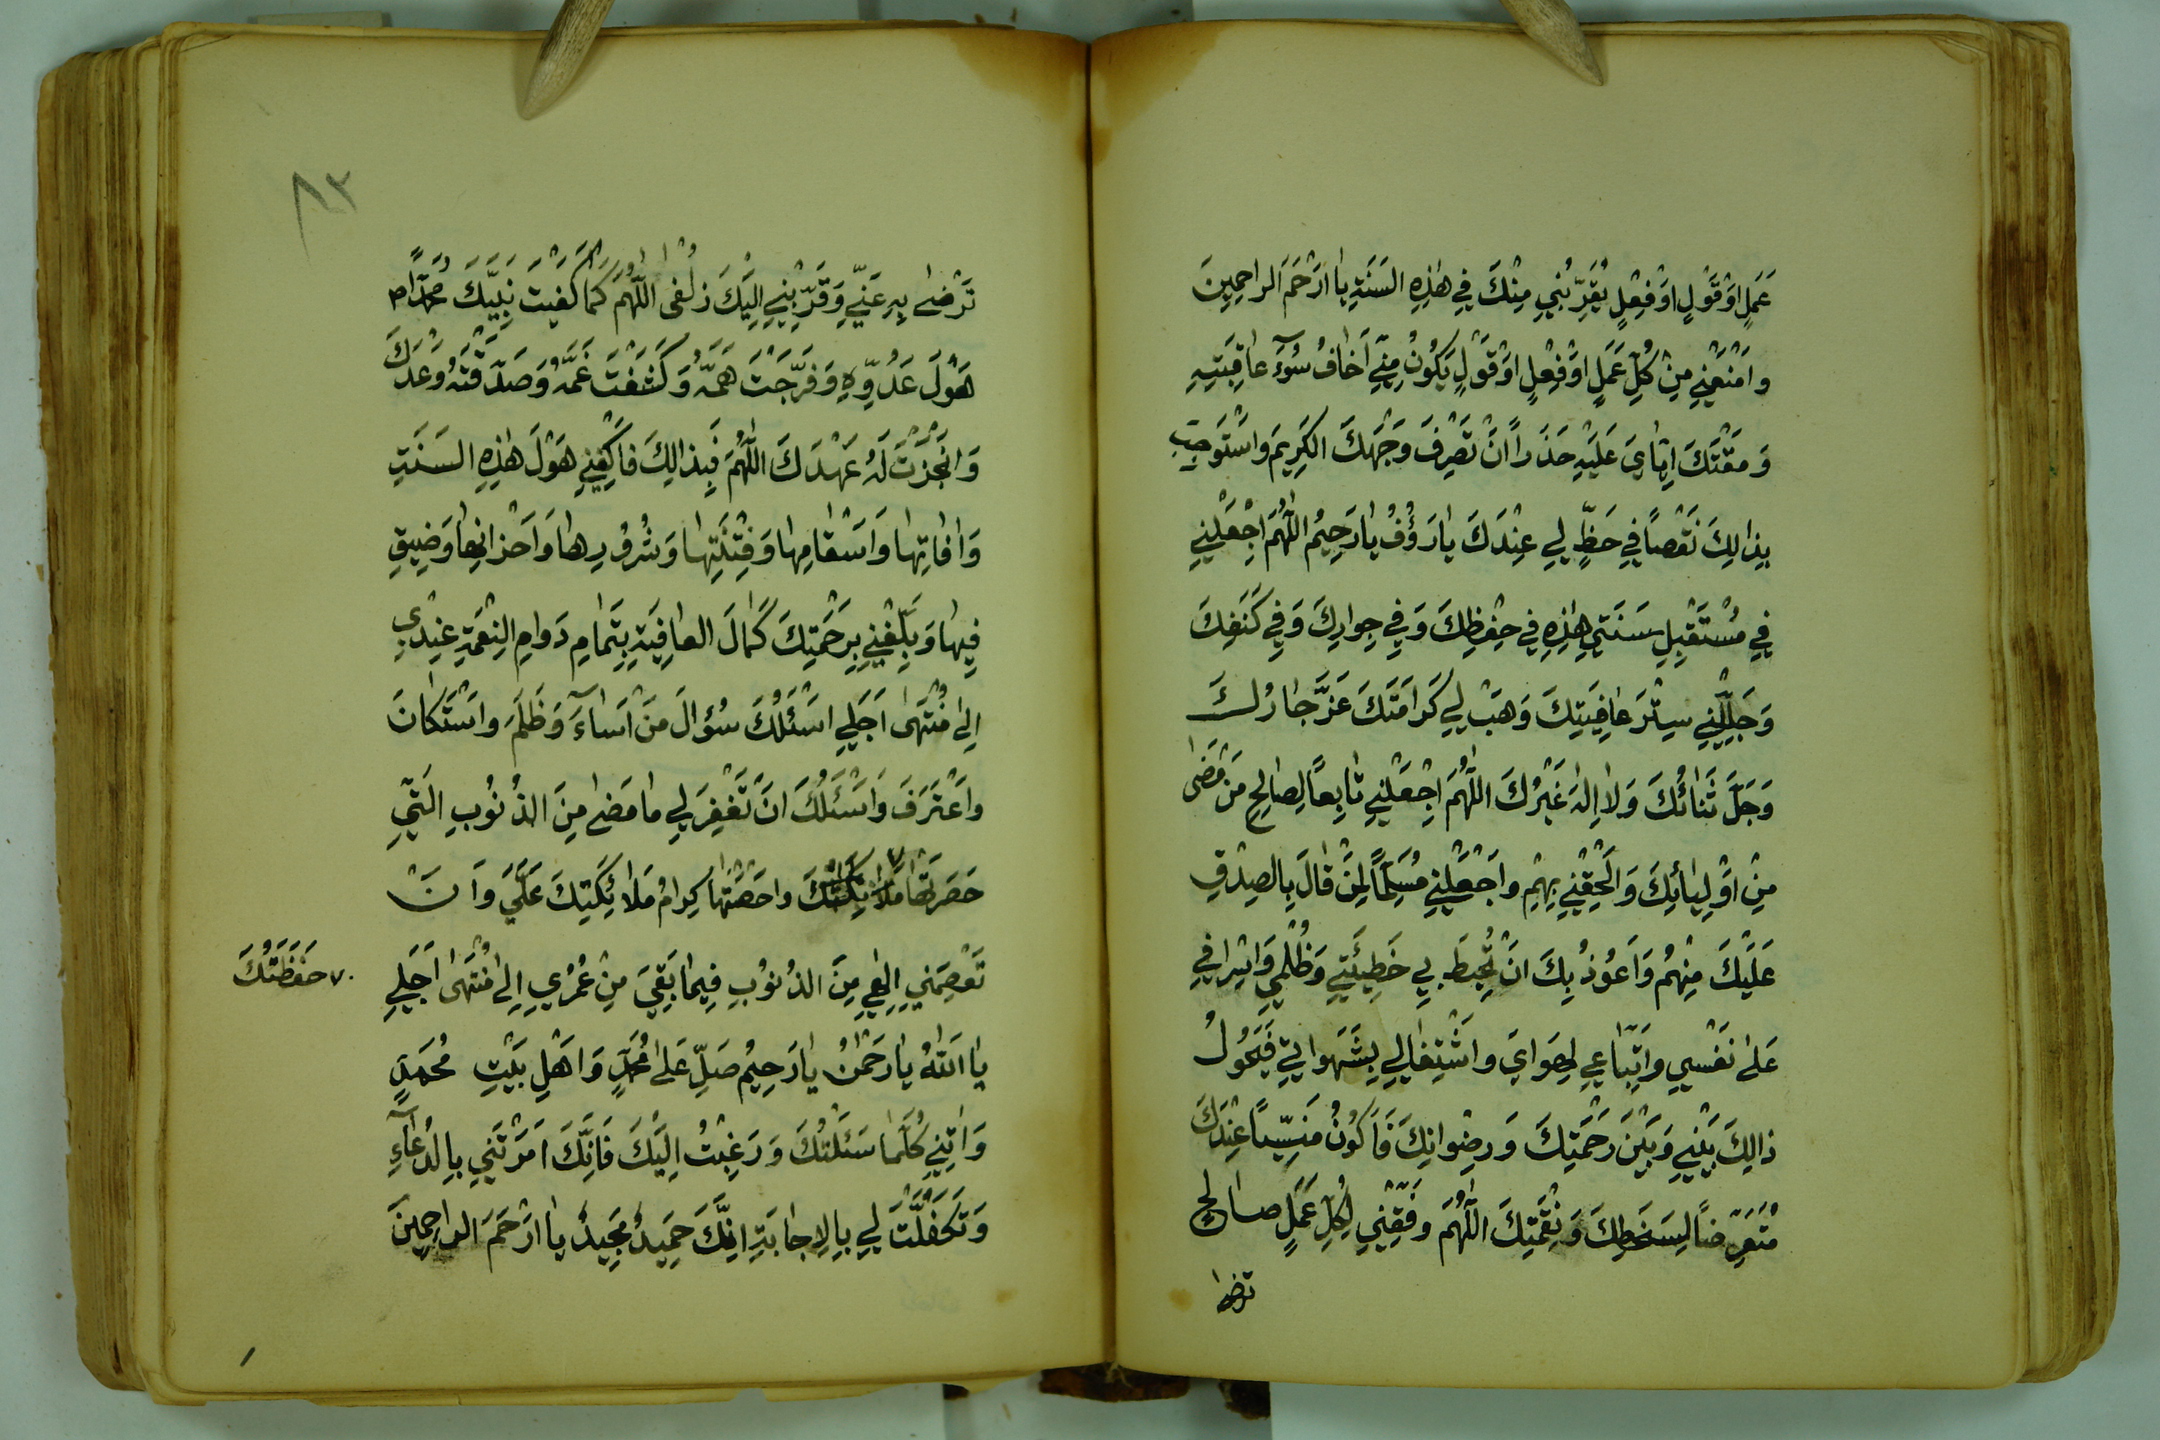 عَمَلٍ اَوْ قَوْلٍ اَوْ فِعْلٍ يُقَرِّبُنِي مِنْكَ فِي هٰذِهِ السَنَةِ يٰا اَرْحَمَ الراحِمِينَ
وامْنَعْنِي مِنْ كُلِّ عَمَلٍ اَوْ فِعْلٍ اَوْ قَوْلٍ يَكُونُ مِنِّي اَخافُ سُوٓءَ عاقِبَتِهِ
وَ مَقْتَكَ اِيّايَ عَلَيْهِ حَذَراً انْ تَصْرِفَ وَجْهَكَ الكَرِيمَ واسْتَوْجِبَ
بِذالِكَ نَقْصاً فِي حَظٍّ لِي عِنْدَكَ يٰا رَؤُفُ يٰا رَحِيمُ اللّٰهُمَ اجْعَلْنِي
فِي مُسْتَقْبِلِ سَنَتِي هٰذِهِ فِي حِفْظِكَ وَ فِي جِوارِكَ وَ فِي كَنَفِكَ
وَ جَلِّلْنِي سِتْرَ عافِيَتِكَ وَ هَبْ لِي كَرامَتَكَ عَزَّ جٰارُكَ
وَ جَلَّ ثَنٰائُكَ وَ لا اِلهَ غَيْرُكَ اللّٰهُمَ اجْعَلْنِي تٰابِعاً لِصالِحِ مَنْ مَضٰى
مِنْ اَوْلِيٰائِكَ وَ الْحِقْنِي بِهِمْ واجْعَلْنِي مُسَلِّماً لِمَنْ قٰالَ بِالصِدْقِ
عَلَيْكَ مِنْهُمْ وَ اَعُوذُ بِكَ انْ تُحِيطَ بِي خَطِيئَتِي وَ ظُلْمِي وَ اسْرافِي
عَلىٰ نَفْسِي واتِّباعِي لِهَوايَ واشْتِغالِي بِشَهَواتِي فَيَحُولُ
ذالِكَ بَيْنِي وَ بَيْنَ رَحْمَتِكَ وَ رِضْوانِكَ فَاَكُونُ مَنْسِيّاً عِنْدَكَ
مُتَعَرِّضاً لِسَخَطِكَ وَ نِقْمَتِكَ اللّٰهُمَ وَفِّقْنِي لِكُلِّ عَمَلٍ صالِحٍ
ترضٰى
٨٣
تَرْضىٰ بِهِ عَنِّي وَ قَرِّبْنِي اِلَيْكَ زُلْفى اللّٰهُمَ كَمٰا كَفَيْتَ نَبِيَّكَ مُحَمَّداً ص
هَوْلَ عَدُوِّهِ وَ فَرَّجْتَ هَمَّهُ وَ كَشَفْتَ غَمَّهُ وَ صَدَّقْتَهُ وَعْدَكَ
وَ انْجَزْتَ لَهُ عَهْدَكَ اللّٰهُمَ فَبِذالِكَ فَاكْفِنِي هَوْلَ هٰذِهِ السَنَةِ
وَ اٰفاتِهٰا وَ اَسْقٰامِهٰا وَ فِتْنَتِهٰا وَ شُرُورِهٰا وَ اَحْزانِهٰا وَ ضِيقِ
فِيهٰا وَ بَلِّغْنِي بِرَحْمَتِكَ كَمٰالَ العافِيَةِ بِتَمٰامِ دَوامِ النِعْمَةِ عِنْدِي
اِلىٰ مُنْتَهىٰ اَجَلِي اَسْئَلُكَ سُؤالَ مَنْ اَسٰاءَ وَ ظَلَمَ واسْتَكانَ
واعْتَرَفَ وَ اَسْئَلُكَ انْ تَغْفِرَ لِي مٰا مَضىٰ مِنَ الذُنُوبِ الَتِي
حَصَرَتْهٰا مَلائِكَتُكَ واحْصَتْهٰا كِرامُ مَلائِكَتِكَ عَلَيَّ وَ انْ
تَعْصِمَنِي اِلهِي مِنَ الذُنُوبِ فِيمٰا بَقِيَ مِنْ عُمُرِي اِلىٰ مُنْتَهىٰ اَجَلِي
٧ حَفَظَتُكَ
يٰا اَللّٰهُ يٰا رَحْمٰنُ يٰا رَحِيمُ صَلِّ عَلىٰ مُحَمَّدٍ وَ اَهْلِ بَيْتِ مُحَمَدٍ
وَ اٰتِنِي كُلَّمٰا سَئَلْتُكَ وَ رَغِبْتُ اِلَيْكَ فَاِنَّكَ اَمَرْتَنِي بِالدُعٰاءِ
وَ تَكَفَّلْتَ لِي بِالاِجٰابَةِ اِنَّكَ حَمِيدٌ مَجِيدٌ يٰا اَرْحَمَ الراحِمِينَ